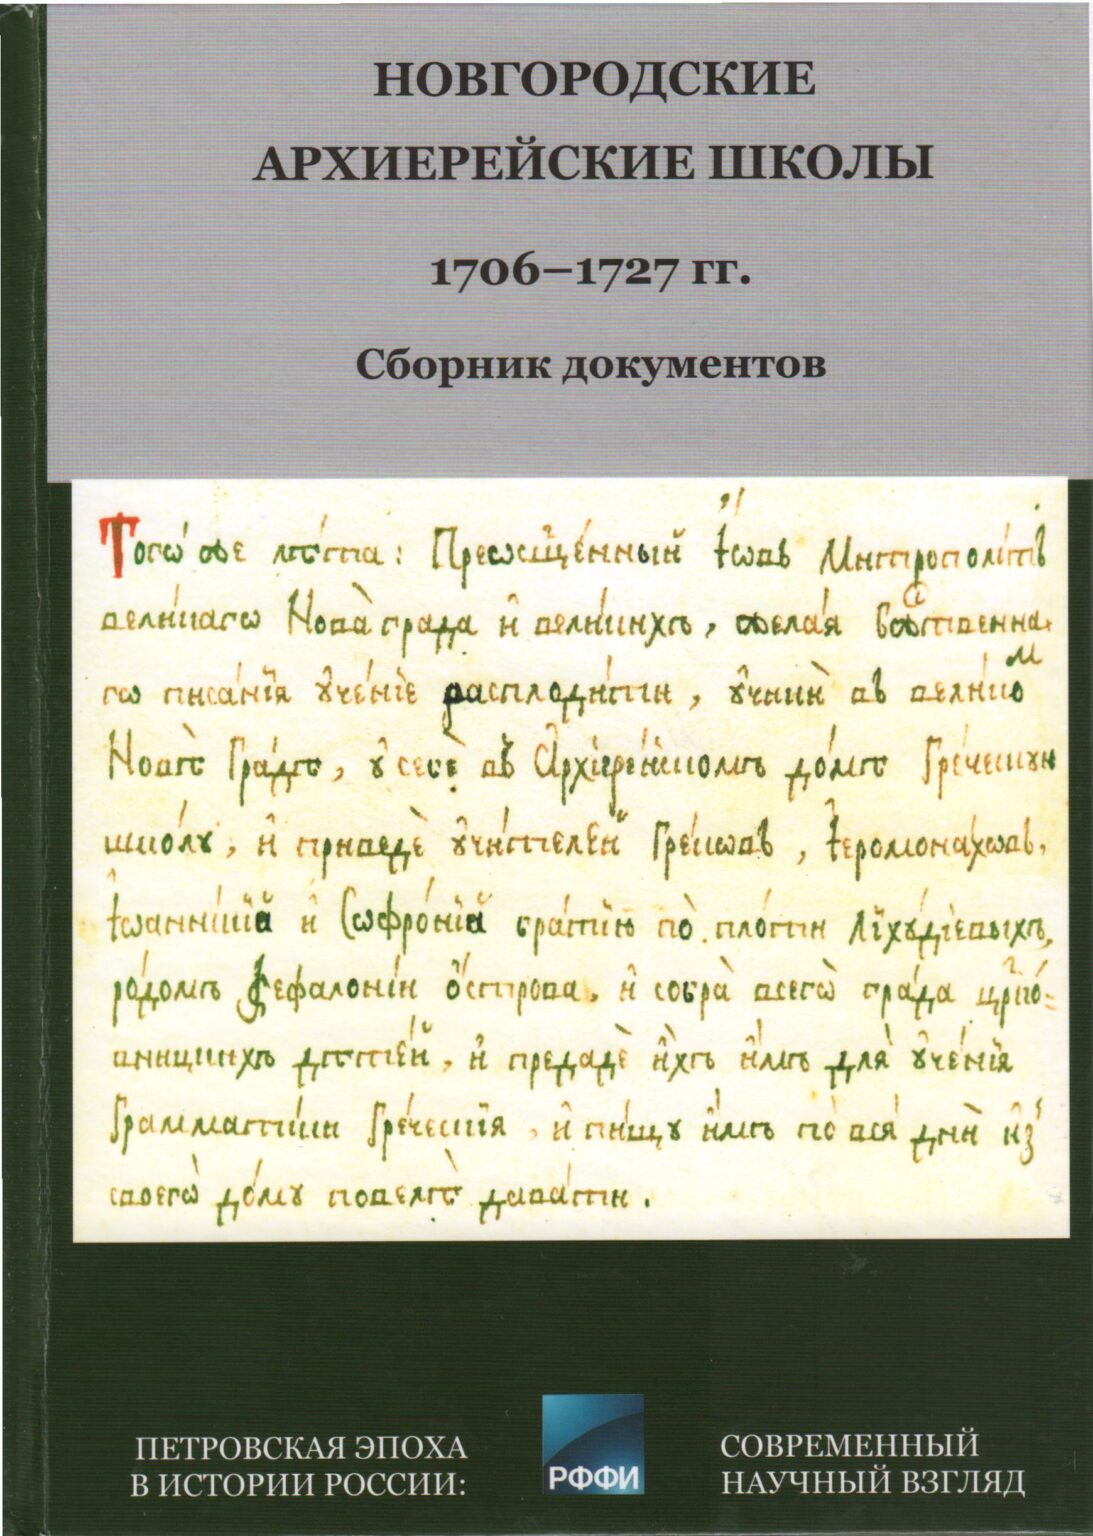 НОВГОРОДСКИЕ
АРХИЕРЕЙСКИЕ ШКОЛЫ
1706–1727 гг.
Сборник документов
Тогѡ́ же лѣ́та: Преѡсщ҃е́нный І҆́ѡвъ Митрополі́тъ
вели́кагѡ Нова̀града и҆ вели́кихъ, жела́ѧ бж҃ственна
гѡ писа́нїѧ ᲂу҆че́нїе расплоди́ти, ᲂу҆чинѝ въ вели́ком
Новѣ̀ Гра́дѣ, ᲂу҆ себѐ въ А҆рхїере́йскомъ до́мѣ Гре́ческꙋю
шко́лꙋ, и҆ приведѐ ᲂу҆чи́телей Гре́кѡвъ, І҆еромона́хѡвъ,
І҆ѡанні́кїѧ и҆ Сѡфро́нїѧ бра́тїю по пло́ти Лїхꙋ́дїевыхъ,
ро́домъ Кефалоні́и ѻ҆́строва, и҆ собра̀ всегѡ̀ гра́да црк҃о́=
вницкихъ дѣте́й, и҆ предадѐ и҆̀хъ и҆̀мъ длѧ̀ ᲂу҆че́нїѧ
Грамма́тїки Гре́ческїѧ, и҆ пи́щꙋ и҆̀мъ по всѧ̀ днѝ и҆з̾
своегѡ̀ до́мꙋ повелѣ̀ дава́ти.
ПЕТРОВСКАЯ ЭПОХА
В ИСТОРИИ РОССИИ:
РФФИ
СОВРЕМЕННЫЙ
НАУЧНЫЙ ВЗГЛЯД